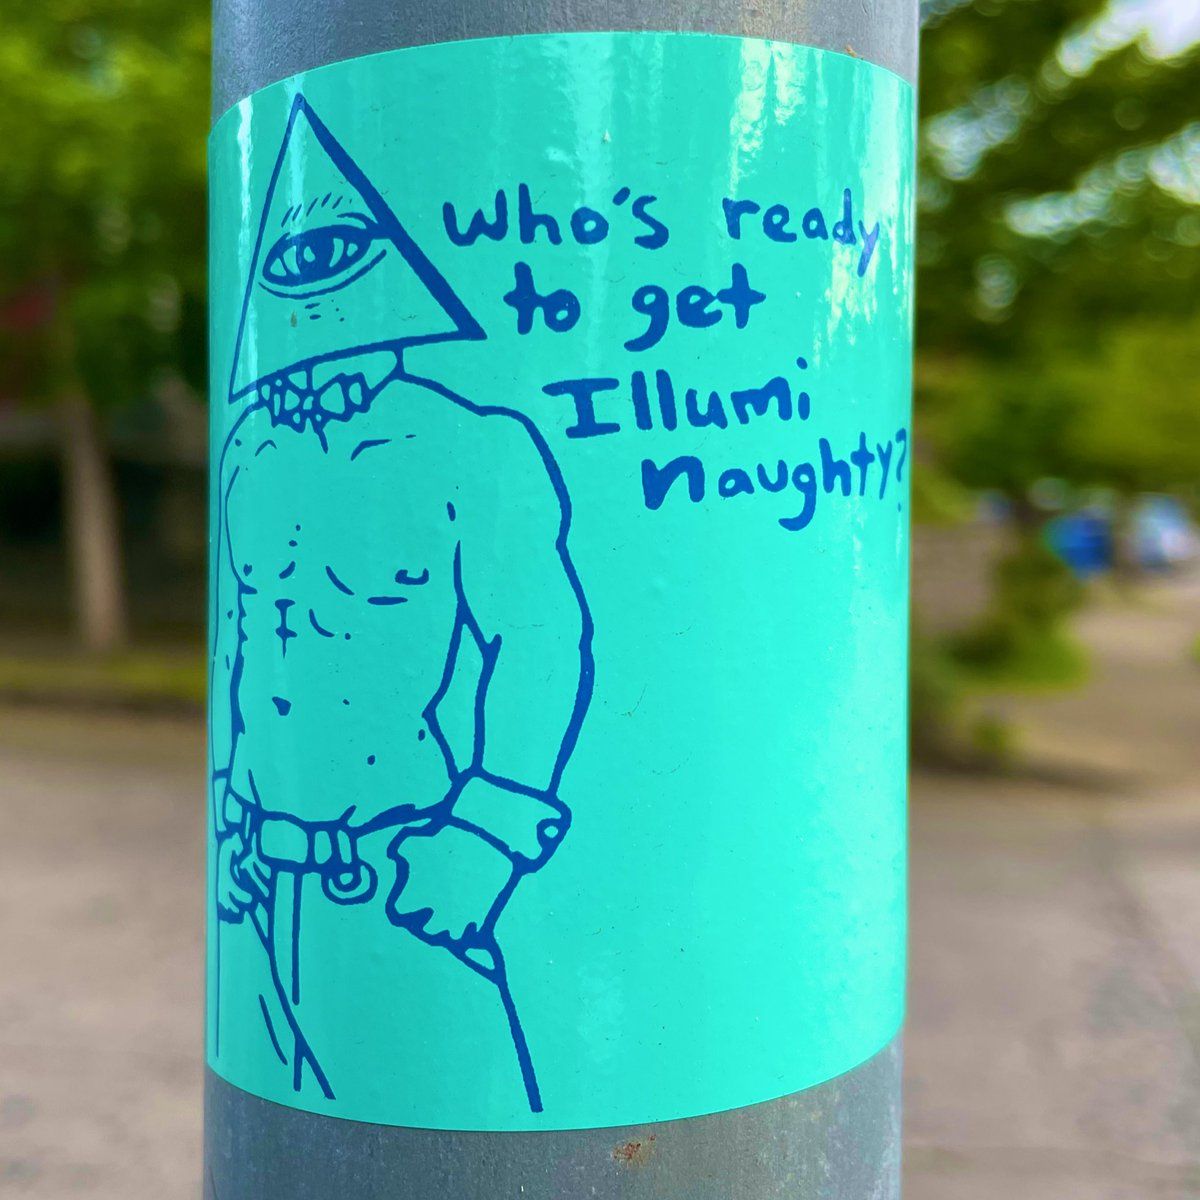 Who's ready
to get
Illumi
naughty?